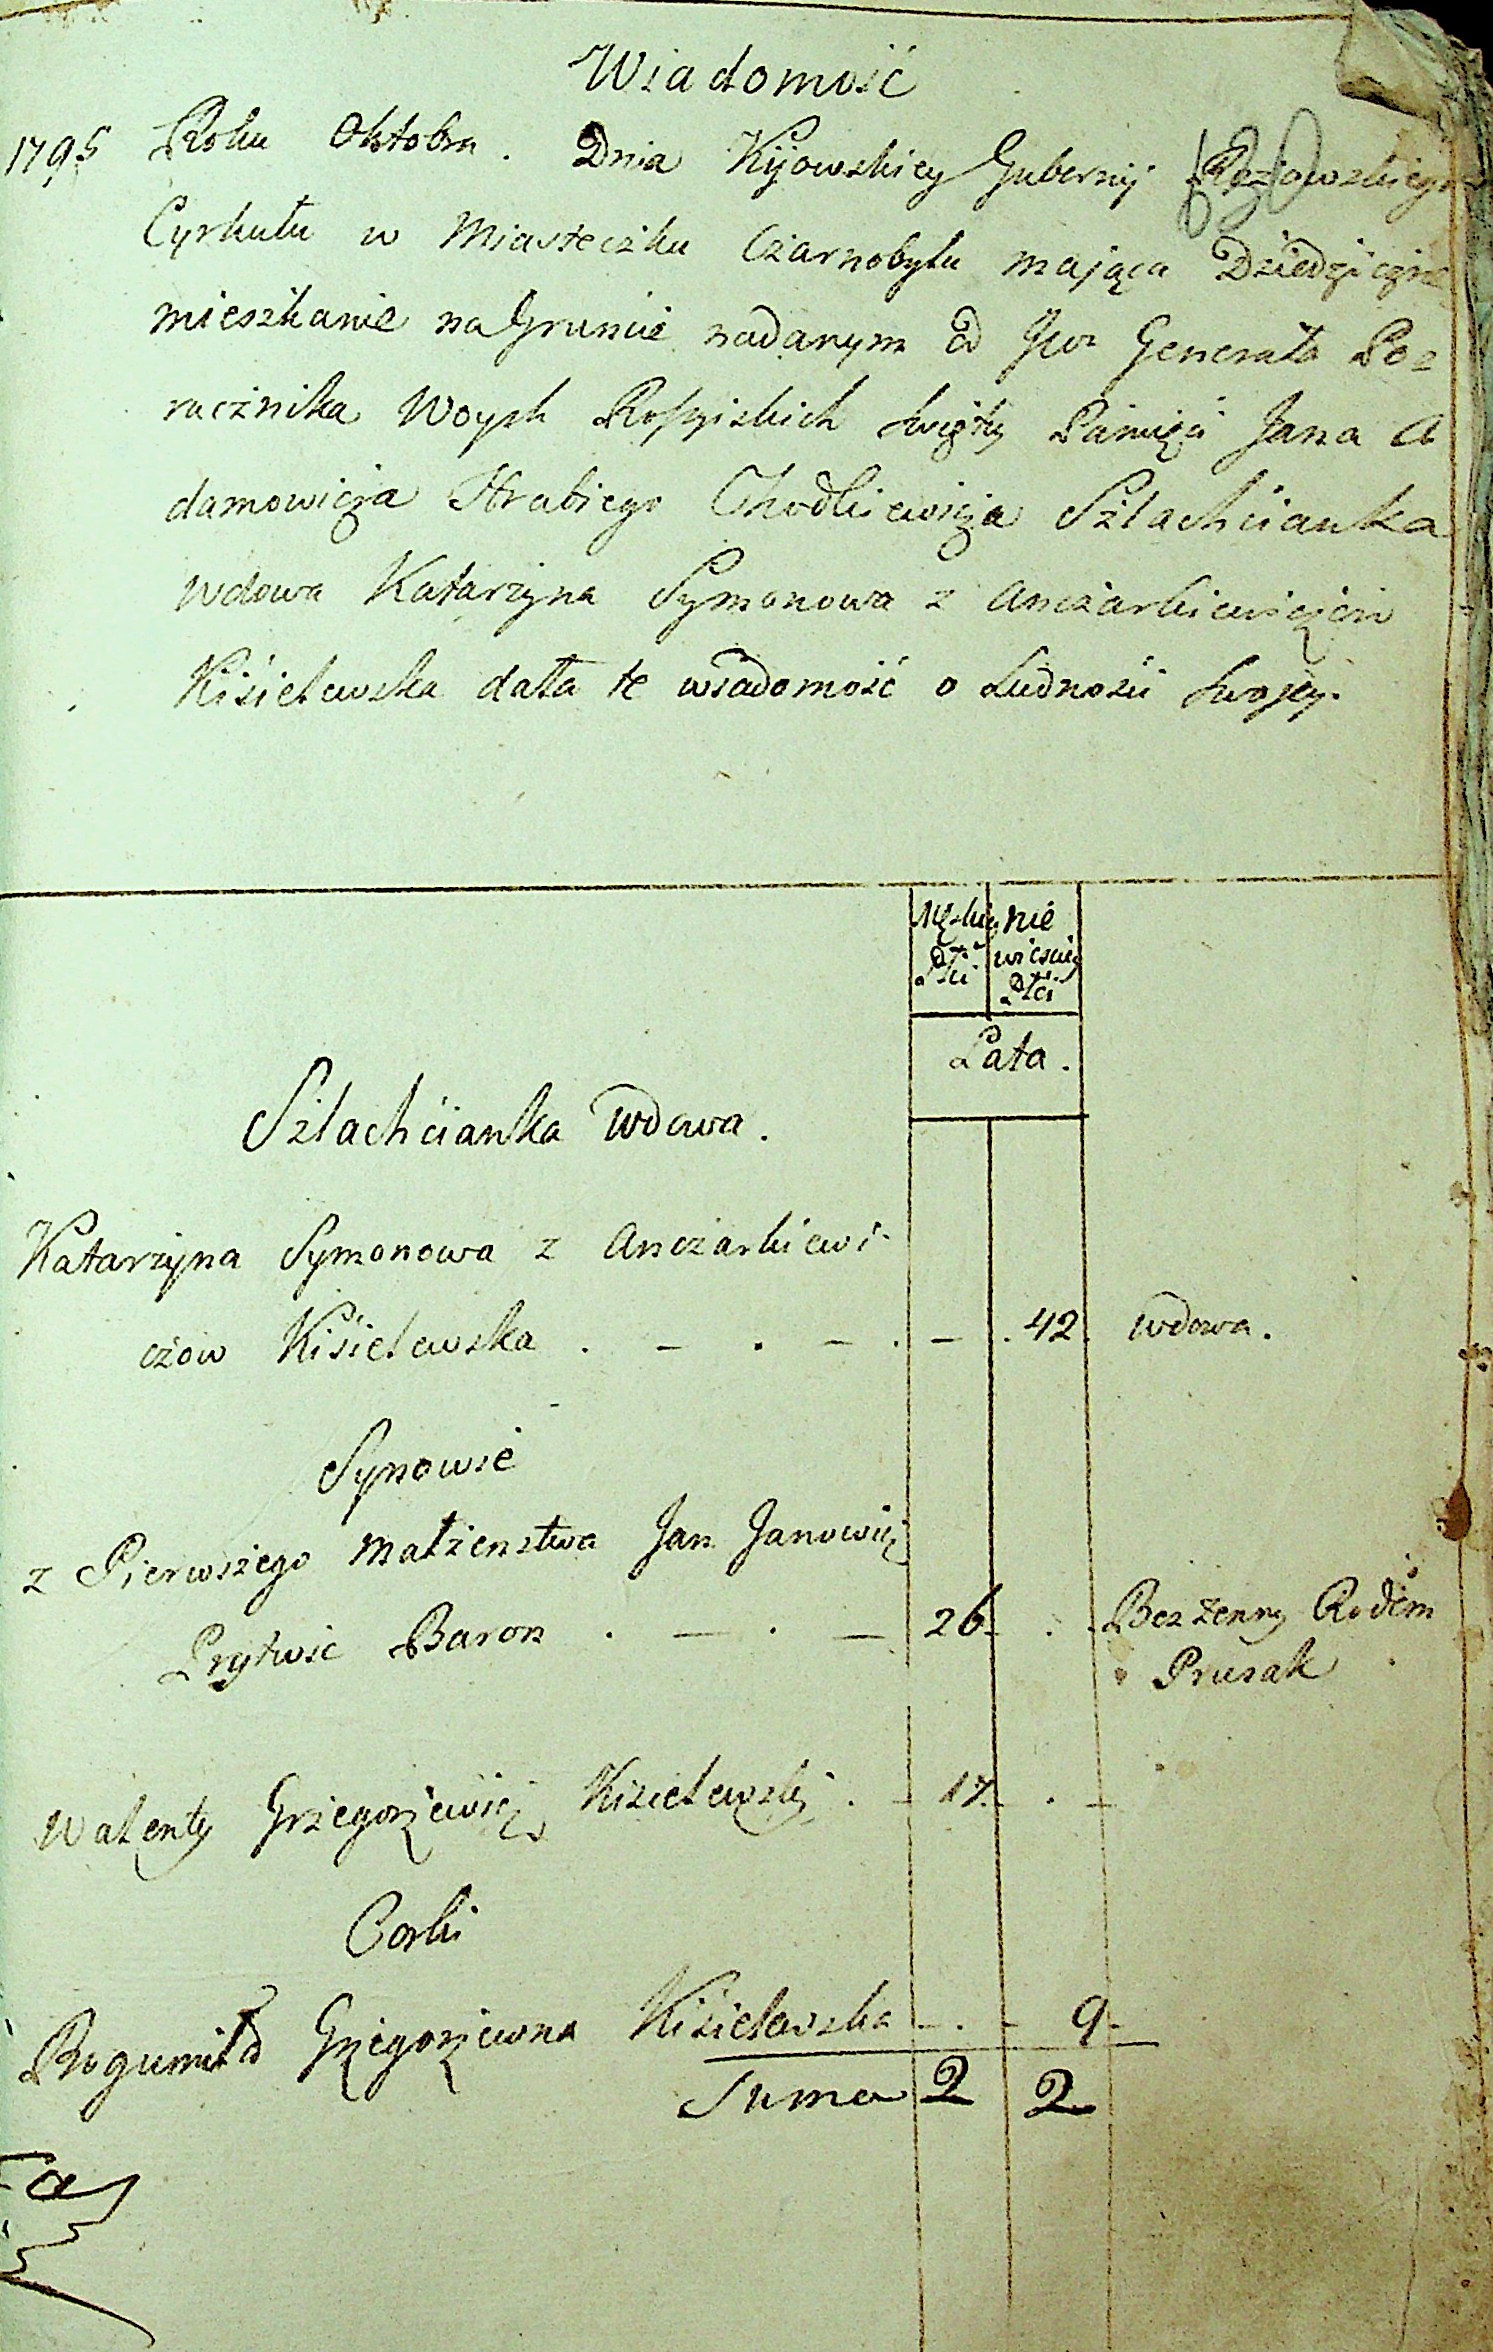 Wiadomość
1795 Roku Oktobra. Dnia Kijowskiey Gubernij
Cyrkułu w Miasteczku Czarnobylu mająca Dziedziczne
mieszkanie na Gruncie nadanym od Jw Generała Po=
rucznika Woysk Rossyiskich świętey Pamięci Jana A
damowicza Hrabiego Chodkiewicza Szlachcianka
wdowa Katarzyna Symonowa z Anczarkiewiczów
Kisielewska dała te wiadomość o Ludności swojey.
Męskiey płci
nie wiesciey płci
Lata.
Szlachcianka wdowa.
Katarzyna Symonowa z Anczarkiewi-
czow Kisielewska . – . – . – . 42. wdowa.
Synowie
z Pierwszego małżenstwa Jan Janowicz
Prytwic Baron . – . – 26. . . Bezżenny Rodem
Prusak
Walenty Grzegorzewicz Kisielewski . – 17. . –
Corki
Bogumiła Grzegorzewna Kisielewska – . – 9 –
Suma 2 2